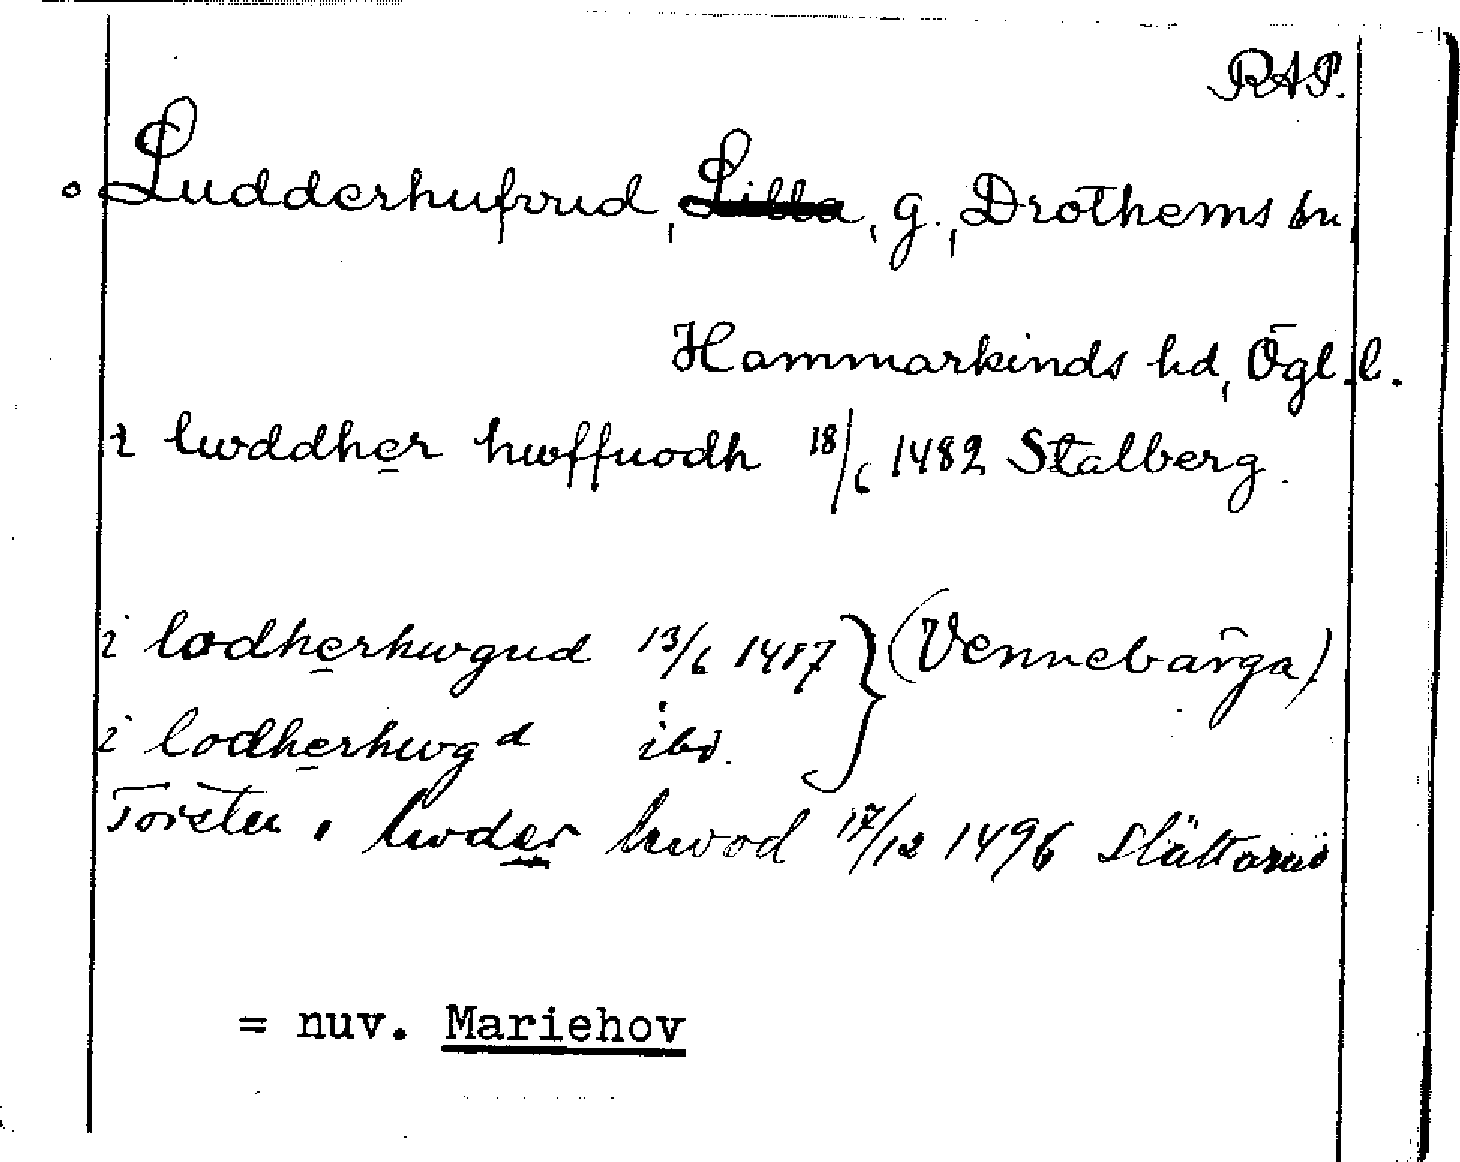 RAP.
Ludderhufvud, Lilla, g., Drothems sn,
Hammarkinds hd, Ögl. l.
i lwddher hwffuodh 18/6 1482 Stalberg.
i lodherhwgud 13/6 1487 } (Vennebärga)
i lodherhwgd ibd.
Torsten i lwder hwod 17/12 1496
= nuv. Mariehov